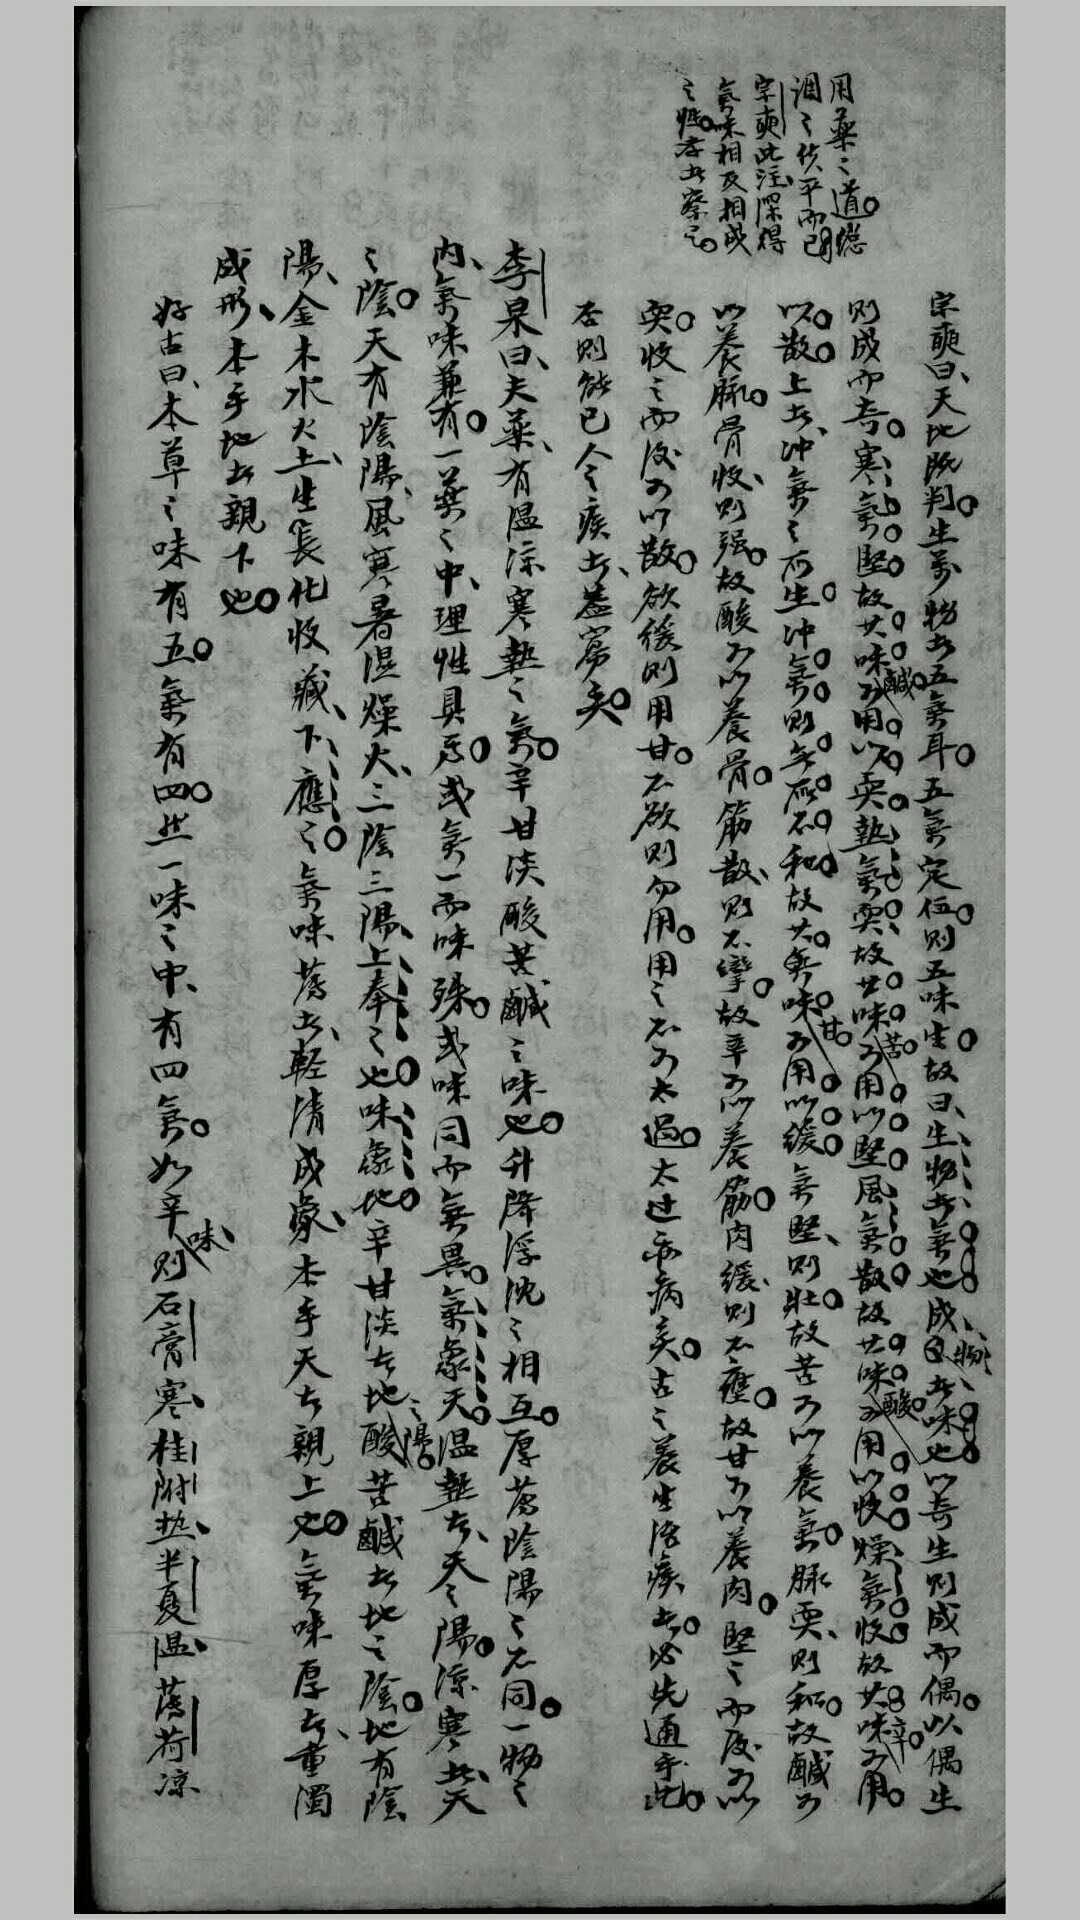 用藥之道總
調之使平而已
宗奭此注深得
氣味相反相成
之性者察之
宗奭曰天地既判生萬物者五氣耳五氣定位則五味生故曰生物者氣也成物者味也以奇生則成而偶以偶生
則成而奇寒氣堅故其味鹹可用以耎熱氣耎故其味苦可用以堅風氣散故其味酸可用以收燥氣收故其味辛可用
以散土者冲氣之所生冲氣則無所不和故其氣味甘可用以緩氣堅則壯故苦可以養氣脉耎則和故鹹可
以養脉骨收則强故酸可以養骨筋散則不攣故辛可以養筋肉緩則不壅故甘可以養肉堅之而後可以
耎收之而後可以散欲緩則用甘不欲則勿用用之不可太過太过亦病矣古之養生治疾者必先通乎此
否則能已人之疾者葢寡矣
李杲曰夫藥有温涼寒熱之氣辛甘淡酸苦鹹之味也升降浮沈之相互厚薄陰陽之不同一物之
内氣味兼有一藥之中理性具焉或氣一而味殊或味同而氣異氣象天温熱者天之陽涼寒者天
之陰天有陰陽風寒暑濕燥火三陰三陽上奉之也味象地辛甘淡者地之陽酸苦鹹者地之陰地有陰
陽金木水火土生長化收藏下應之氣味薄者輕清成象本乎天者親上也氣味厚者重濁
成形本乎地者親下也
好古曰本草之味有五氣有四然一味之中有四氣如辛味則石膏寒桂附热半夏温薄荷凉